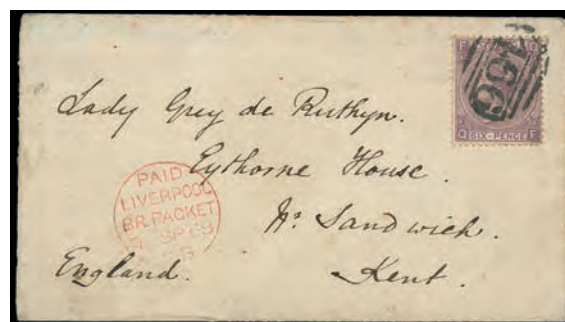 Lady Grey de Ruthyn.
Eythorne House.
Nr. Sandwich.
Kent.
England.
PAID
LIVERPOOL
BR. PACKET
SP 68
Q SIX-PENCE F
466